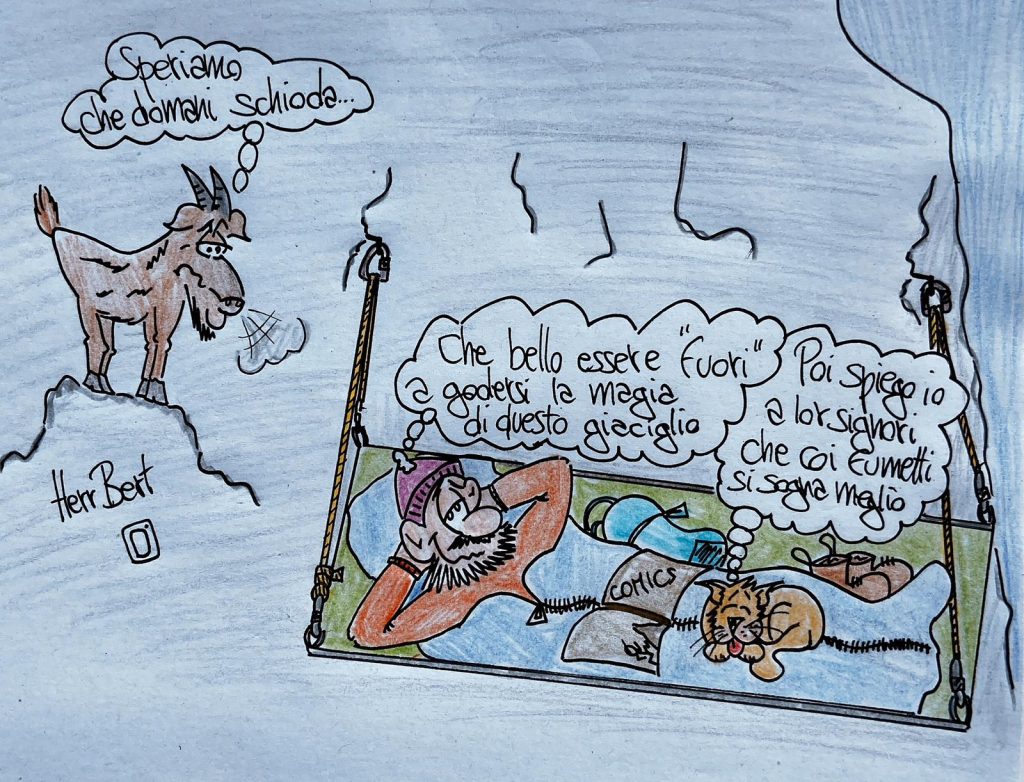 Speriamo
che domani schioda...
Che bello essere "fuori"
a godersi la magia
di questo giaciglio
Poi spiego io
a lor signori
che coi fumetti
si sogna meglio
COMICS
Herr Bert